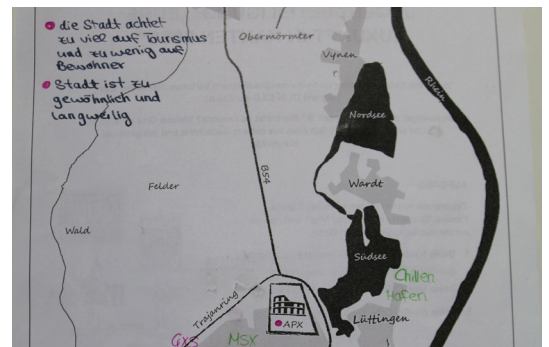 die Stadt achtet
zu viel auf Tourismus
und zu wenig auf
Bewohner
Stadt ist zu
gewöhnlich und
langweilig
Obermörmter
Vynen
Rhein
Nordsee
B54
Felder
Wardt
Wald
Südsee
Chillen
Hafen
Trajanring
APX
Lüttingen
MSX